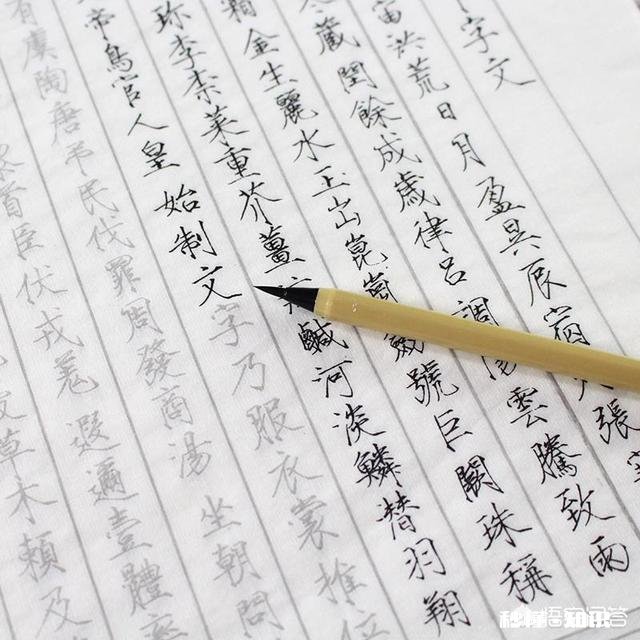 字文
宙洪荒日月盈昃辰宿張
藏閏餘成歲律呂調陽雲騰致雨
霜金生麗水玉出崑崗劍號巨闕珠稱
珍李柰菜重芥薑鹹河淡鱗潛羽翔
帝鳥官人皇始制文字乃服衣裳推位
有虞陶唐弔民伐罪周發商湯坐朝問
黎首臣伏戎羌遐邇壹體
草木賴及
悟空问答